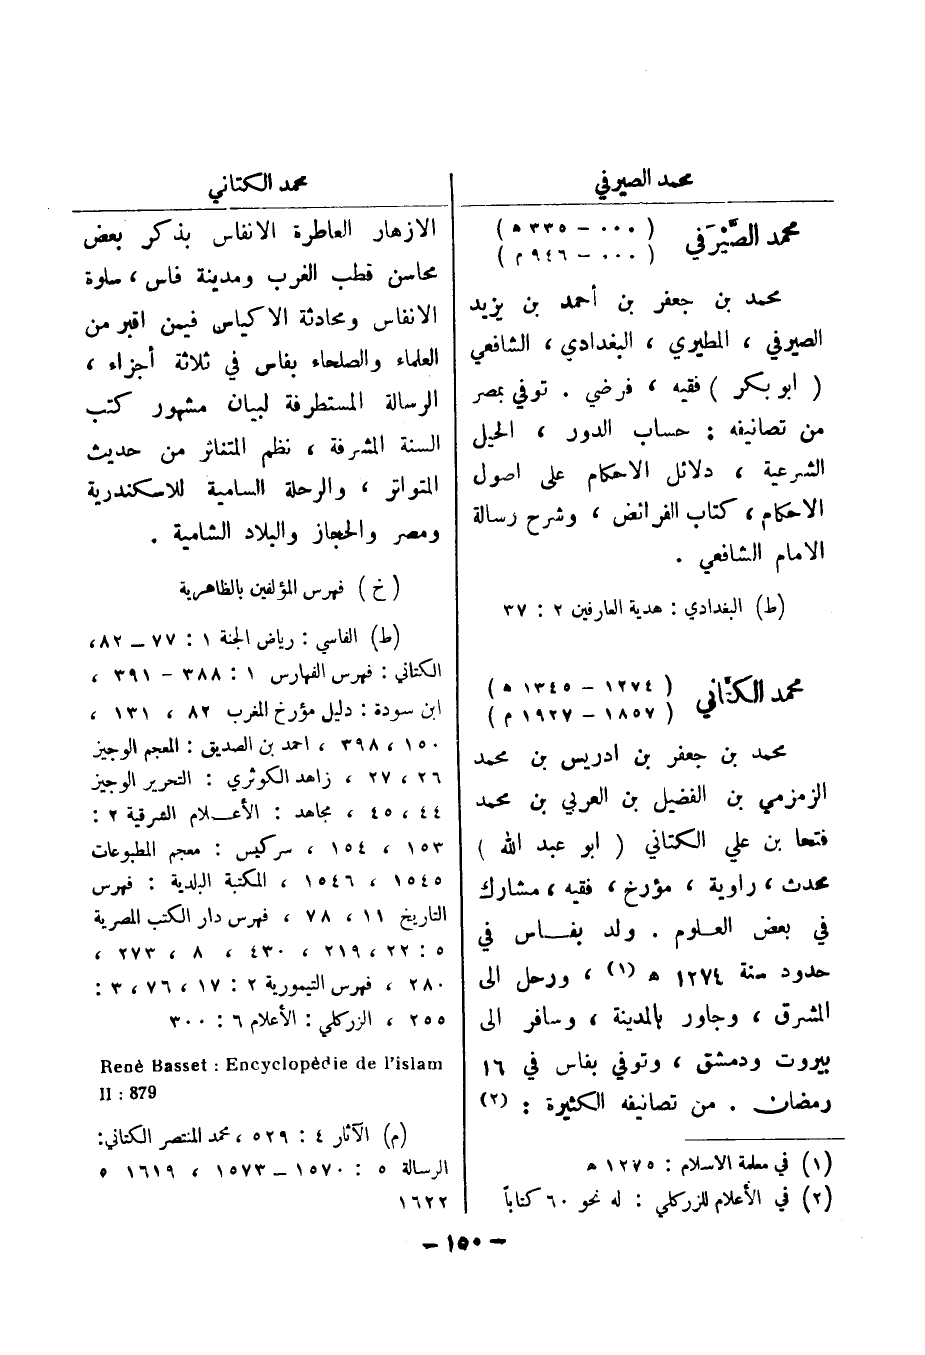 محمد الصيرفي
محمد الصَّيْرَفي
( ٠٠٠ – ٣٣٥ ه )
( ٠٠٠ – ٩٤٦ م )
محمد بن جعفر بن أحمد بن يزيد
الصيرفي ، المطيري ، البغدادي ، الشافعي
( ابو بكر ) فقيه ، فرضي . توفي بمصر
من تصانيفه : حساب الدور ، الحيل
الشرعية ، دلائل الاحكام على اصول
الاحكام ، كتاب الفرائض ، وشرح رسالة
الامام الشافعي .
(ط) البغدادي : هدية العارفين ٢ : ٣٧
محمد الكتّاني
( ١٢٧٤ – ١٣٤٥ ه )
( ١٨٥٧ – ١٩٢٧ م )
محمد بن جعفر بن ادريس بن محمد
الزمزمي بن الفضيل بن العربي بن محمد
فتحا بن علي الكتاني ( ابو عبد الله )
محدث ، راوية ، مؤرخ ، فقيه ، مشارك
في بعض العلوم . ولد بفاس في
حدود سنة ١٢٧٤ ه (١) ، ورحل الى
المشرق ، وجاور بالمدينة ، وسافر الى
بيروت ودمشق ، وتوفي بفاس في ١٦
رمضان . من تصانيفه الكثيرة : (٢)
(١) في معلمة الاسلام : ١٢٧٥ ه
(٢) في الأعلام للزركلي : له نحو ٦٠ كتاباً
محمد الكتاني
الازهار العاطرة الانفاس بذكر بعض
محاسن قطب الغرب ومدينة فاس ، سلوة
الانفاس ومحادثة الاكياس فيمن اقبر من
العلماء والصلحاء بفاس في ثلاثة أجزاء ،
الرسالة المستطرفة لبيان مشهور كتب
السنة المشرفة ، نظم المتناثر من حديث
المتواتر ، والرحلة السامية للاسكندرية
ومصر والحجاز والبلاد الشامية .
( خ ) فهرس المؤلفين بالظاهرية
(ط) الفاسي : رياض الجنة ١ : ٧٧ – ٨٢ ،
الكتاني : فهرس الفهارس ١ : ٣٨٨ – ٣٩١ ،
ابن سودة : دليل مؤرخ المغرب ٨٢ ، ١٣١ ،
١٥٠ ، ٣٩٨ ، احمد بن الصديق : المعجم الوجيز
٢٦ ، ٢٧ ، زاهد الكوثري : التحرير الوجيز
٤٤ ، ٤٥ ، مجاهد : الأعلام الشرقية ٢ :
١٥٣ ، ١٥٤ ، سركيس : معجم المطبوعات
١٥٤٥ ، ١٥٤٦ ، المكتبة البلدية : فهرس
التاريخ ١١ ، ٧٨ ، فهرس دار الكتب المصرية
٥ : ٢٢ ، ٢١٩ ، ٤٣٠ ، ٨ ، ٢٧٣ ،
٢٨٠ ، فهرس التيمورية ٢ : ١٧ ، ٧٦ ، ٣ :
٢٥٥ ، الزركلي : الأعلام ٦ : ٣٠٠
Renè Basset : Encyclopèdie de l'islam
II : 879
(م) الآثار ٤ : ٥٢٩ ، محمد المنتصر الكتاني :
الرسالة ٥ : ١٥٧٠ – ١٥٧٣ ، ١٦١٩ ٥
١٦٢٢
– ١٥٠ –